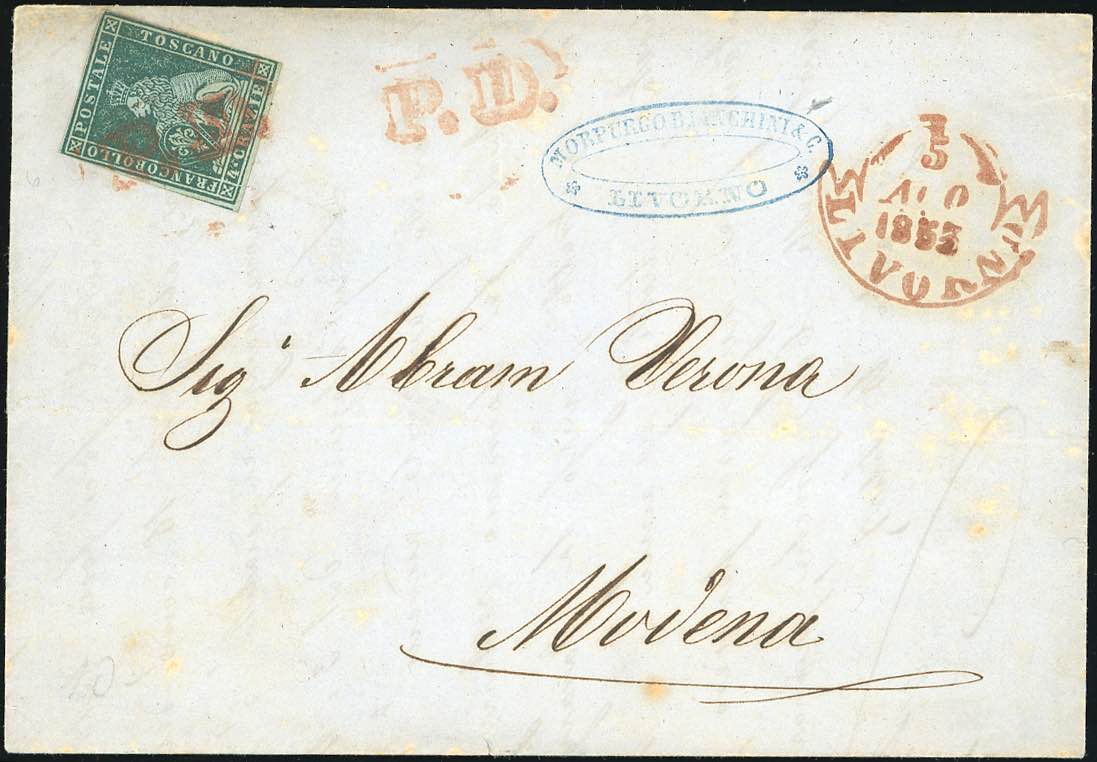 FRANCOBOLLO POSTALE TOSCANO 4. CRAZIE
P.D.
MORPURGO BIANCHINI & C.
LIVORNO
5
1853
Sig.r Abram Verona
Modena